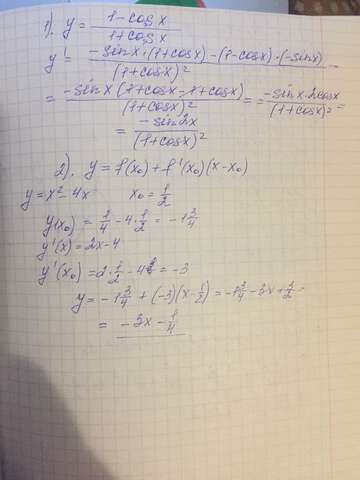 1). y = (1-cos x)/(1+cos x)
y' = (-sin x·(1+cos x)-(1-cos x)·(-sin x))/(1+cos x)² =
= (-sin x(1+cos x-1+cos x))/(1+cos x)² = = (-sin x·2cos x)/(1+cos x)² =
= (-sin 2x)/(1+cos x)²
2). y = f(x₀)+f'(x₀)(x-x₀)
y = x²-4x x₀ = 1/2
y(x₀) = 1/4 - 4·1/2 = -1 3/4
y'(x) = 2x-4
y'(x₀) = 2·1/2 - 4 = -3
y = -1 3/4 + (-3)(x-1/2) = -1 3/4 - 3x + 1/2 =
= -3x - 1/4